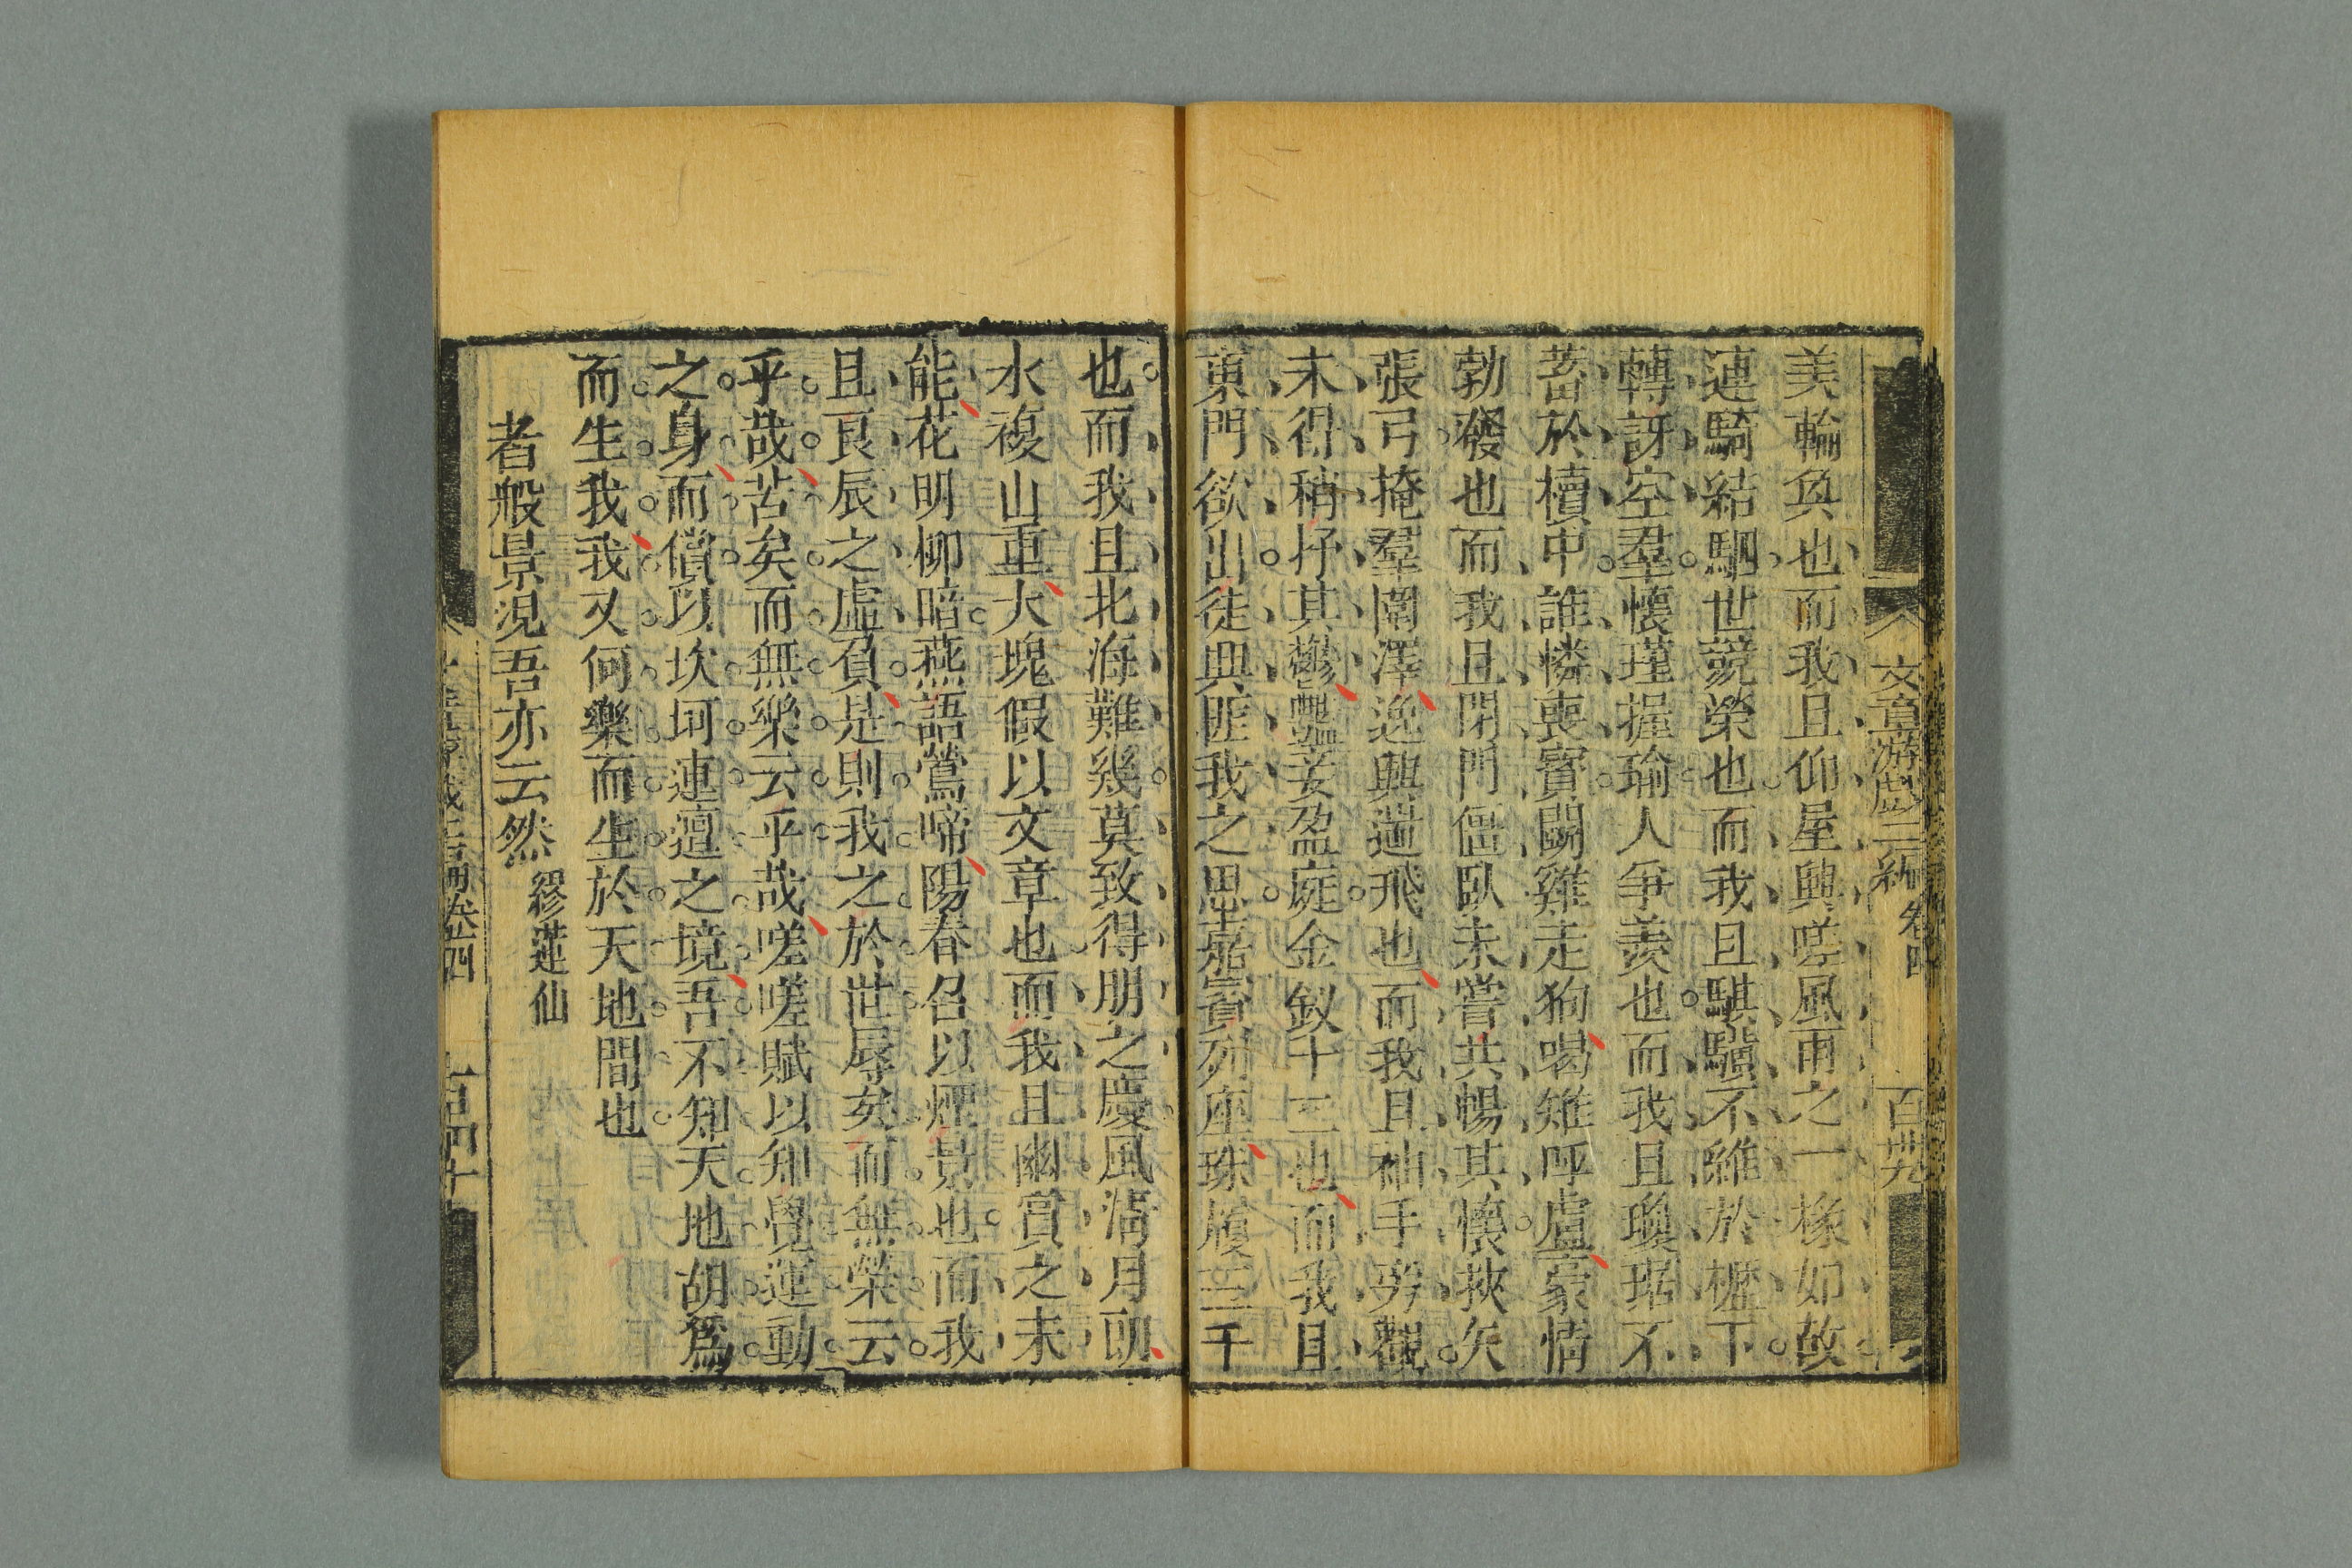 文章游戲三編 卷四 百卅九
美輪奐也而我且仰屋興嗟風雨之一椽如故
連騎結駟世競榮也而我且騏驥不維於櫪下
轉訝空羣懷瑾握瑜人爭羨也而我且瓊琚不
蓄於櫝中誰憐喪寶鬭雞走狗喝雉呼盧豪情
勃發也而我且閉門僵臥未嘗共暢其懷挾矢
張弓掩羣闈澤逸興遄飛也而我且袖手旁觀
未得稍抒其鬱豔妾盈庭金釵十二也而我且
東門欲出徒興匪我之思嘉賓列座珠履三千
也而我且北海難幾莫致得朋之慶風淸月朗
水複山重大塊假以文章也而我且幽賞之未
能花明柳暗燕語鶯啼陽春召以煙景也而我
且良辰之虛負是則我之於世辱矣而無榮云
乎哉苦矣而無樂云乎哉嗟嗟賦以知覺運動
之身而償以坎坷連邅之境吾不知天地胡爲
而生我我又何樂而生於天地間也
者般景况吾亦云然 繆蓮仙
卷四 一百四十